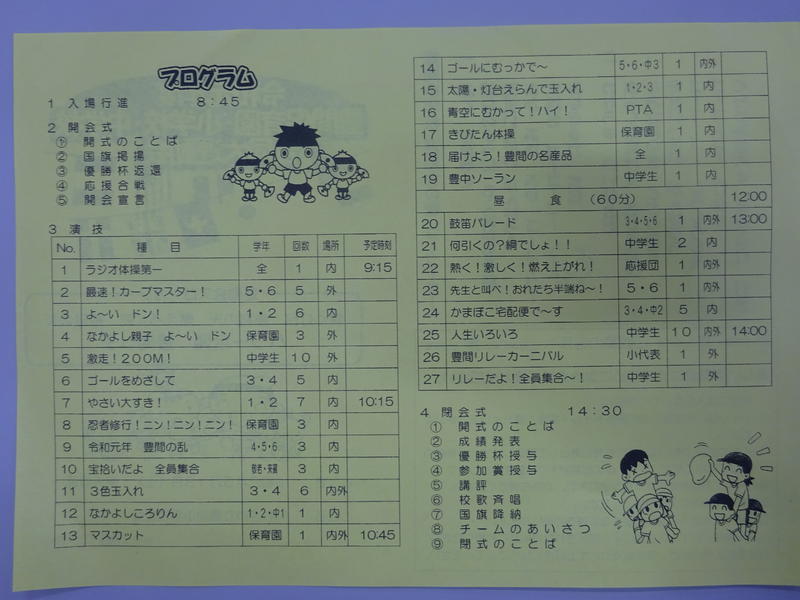 プログラム
1 入場行進 8:45
2 開会式
① 開式のことば
② 国旗掲揚
③ 優勝杯返還
④ 応援合戦
⑤ 開会宣言
3 演技
No. 種目 学年 回数 場所 予定時刻
1 ラジオ体操第一 全 1 内 9:15
2 最速!カーブマスター! 5・6 5 外
3 よ~い ドン! 1・2 6 内
4 なかよし親子 よ~い ドン 保育園 3 外
5 激走!200M! 中学生 10 外
6 ゴールをめざして 3・4 5 内
7 やさい大すき! 1・2 7 内 10:15
8 忍者修行!ニン!ニン!ニン! 保育園 3 内
9 令和元年 豊間の乱 4・5・6 3 内
10 宝拾いだよ 全員集合 3 内
11 3色玉入れ 3・4 6 内外
12 なかよしころりん 1・2・中1 1 内
13 マスカット 保育園 1 内外 10:45
14 ゴールにむっかで~ 5・6・中3 1 内外
15 太陽・灯台えらんで玉入れ 1・2・3 1 内
16 青空にむかって!ハイ! PTA 1 内
17 きびたん体操 保育園 1 内
18 届けよう!豊間の名産品 全 1 内
19 豊中ソーラン 中学生 1 内
昼食 (60分) 12:00
20 鼓笛パレード 3・4・5・6 1 内外 13:00
21 何引くの?綱でしょ!! 中学生 2 内
22 熱く!激しく!燃え上がれ! 応援団 1 内外
23 先生と叫べ!おれたち半端ね~! 5・6 1 内外
24 かまぼこ宅配便で~す 3・4・中2 5 内
25 人生いろいろ 中学生 10 内外 14:00
26 豊間リレーカーニバル 小代表 1 外
27 リレーだよ!全員集合~! 中学生 1 外
4 閉会式 14:30
① 開式のことば
② 成績発表
③ 優勝杯授与
④ 参加賞授与
⑤ 講評
⑥ 校歌斉唱
⑦ 国旗降納
⑧ チームのあいさつ
⑨ 閉式のことば